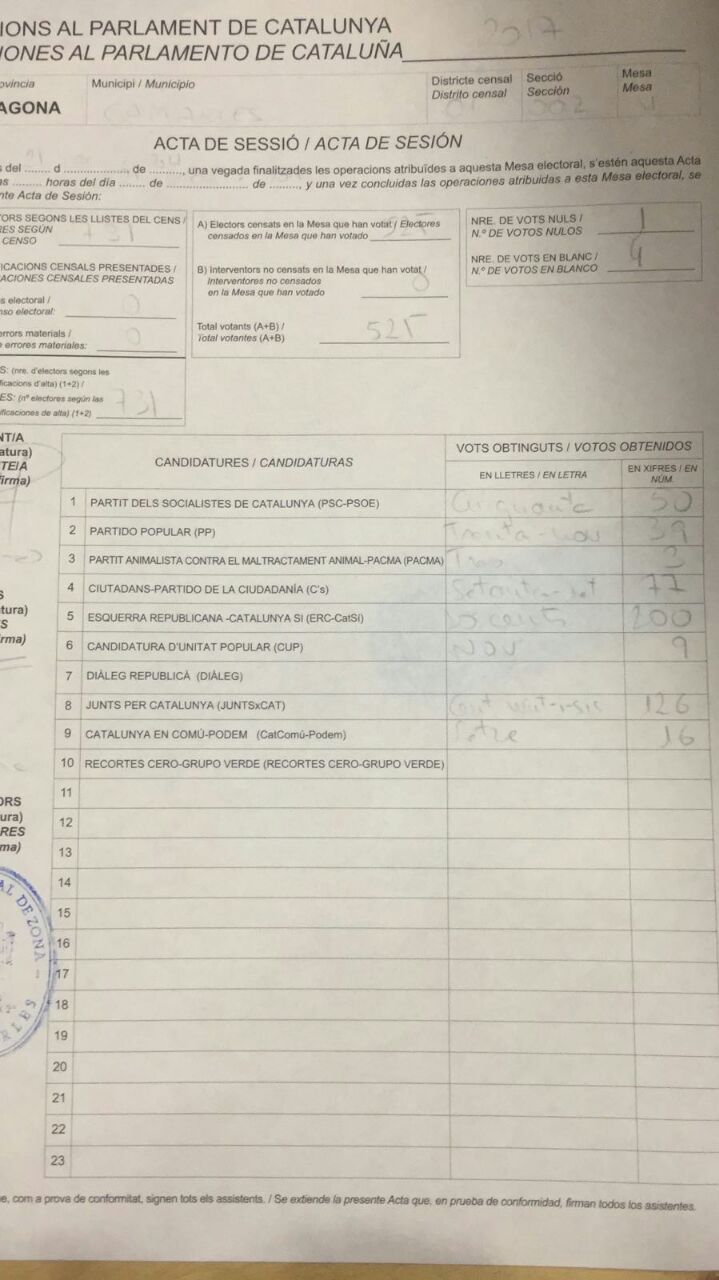 IONS AL PARLAMENT DE CATALUNYA 2017
IONES AL PARLAMENTO DE CATALUÑA
ovíncia Municipi / Municipio Districte censal Secció Mesa
Distrito censal Sección Mesa
AGONA 01 002
ACTA DE SESSIÓ / ACTA DE SESIÓN
s del ........ d ..................... de .........., una vegada finalitzades les operacions atribuïdes a aquesta Mesa electoral, s'estén aquesta Acta
as ......... horas del día ........ de ......................... de ........., y una vez concluidas las operaciones atribuidas a esta Mesa electoral, se
nte Acta de Sesión:
TORS SEGONS LES LLISTES DEL CENS /
RES SEGÚN
CENSO 731
FICACIONS CENSALS PRESENTADES /
ACIONES CENSALES PRESENTADAS
s electoral /
nso electoral: 0
errors materials /
e errores materiales: 0
S: (nre. d'electors segons les
ficacions d'alta) (1+2) /
ES: (nº electores según las
ificaciones de alta) (1+2) 731
A) Electors censats en la Mesa que han votat / Electores
censados en la Mesa que han votado 525
B) Interventors no censats en la Mesa que han votat /
Interventores no censados
en la Mesa que han votado 0
Total votants (A+B) /
Total votantes (A+B) 525
NRE. DE VOTS NULS /
N.º DE VOTOS NULOS 1
NRE. DE VOTS EN BLANC /
N.º DE VOTOS EN BLANCO 4
NT/A
atura)
TE/A
firma)
CANDIDATURES / CANDIDATURAS VOTS OBTINGUTS / VOTOS OBTENIDOS
EN LLETRES / EN LETRA EN XIFRES / EN NÚM.
1 PARTIT DELS SOCIALISTES DE CATALUNYA (PSC-PSOE) Cinquanta 50
2 PARTIDO POPULAR (PP) Trenta-nou 39
3 PARTIT ANIMALISTA CONTRA EL MALTRACTAMENT ANIMAL-PACMA (PACMA) Tres 3
4 CIUTADANS-PARTIDO DE LA CIUDADANÍA (C's) Setanta-set 77
5 ESQUERRA REPUBLICANA -CATALUNYA SÍ (ERC-CatSí) 200
6 CANDIDATURA D'UNITAT POPULAR (CUP) NOU 9
7 DIÀLEG REPUBLICÀ (DIÀLEG)
8 JUNTS PER CATALUNYA (JUNTSxCAT) Cent vint-i-sis 126
9 CATALUNYA EN COMÚ-PODEM (CatComú-Podem) Setze 16
10 RECORTES CERO-GRUPO VERDE (RECORTES CERO-GRUPO VERDE)
11
12
13
14
15
16
17
18
19
20
21
22
23
S
atura)
S
rma)
ORS
ura)
RES
ma)
AL DE ZONA
e, com a prova de conformitat, signen tots els assistents. / Se extiende la presente Acta que, en prueba de conformidad, firman todos los asistentes.